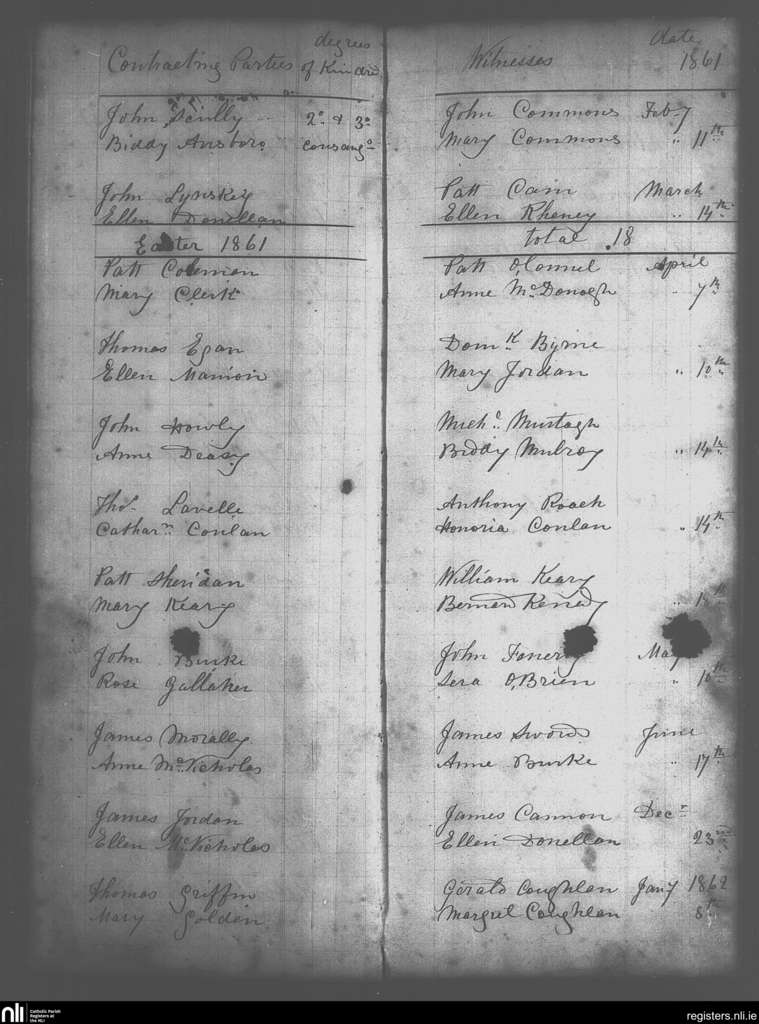 degrees date
Contracting Parties of Kindrd Witnesses 1861
John Scully 2o & 3o John Commons Feby
Biddy Ansboro consango Mary Commons " 11th
John Lynskey Patt Cain March
Ellen Donellan Ellen Rheney " 14th
Easter 1861 total 18
Patt Coleman Patt O,Connel April
Mary Clerk Anne McDonogh " 7th
Thomas Egan Domk Byrne
Ellen Manion Mary Jordan " 10th
John Howly Michl Murtagh
Anne Deasy Biddy Mulroy " 14th
Thos Lavelle Anthony Roach
Catharn Conlan Honoria Conlan " 14th
Patt Sheridan William Keary
Mary Keary Bernard Kenedy "
John Burke John May
Rose Gallaher Sera O,Brien " 10th
James Morally James Swords June
Anne McNicholas Anne Burke " 17th
James Jordan James Cannon Decr
Ellen McNicholas Ellen Donellan 23rd
Thomas Griffin Gerald Coughlan Jany 1862
Mary Golden Margret Coughlan 8th
nli Catholic Parish Registers at the NLI registers.nli.ie